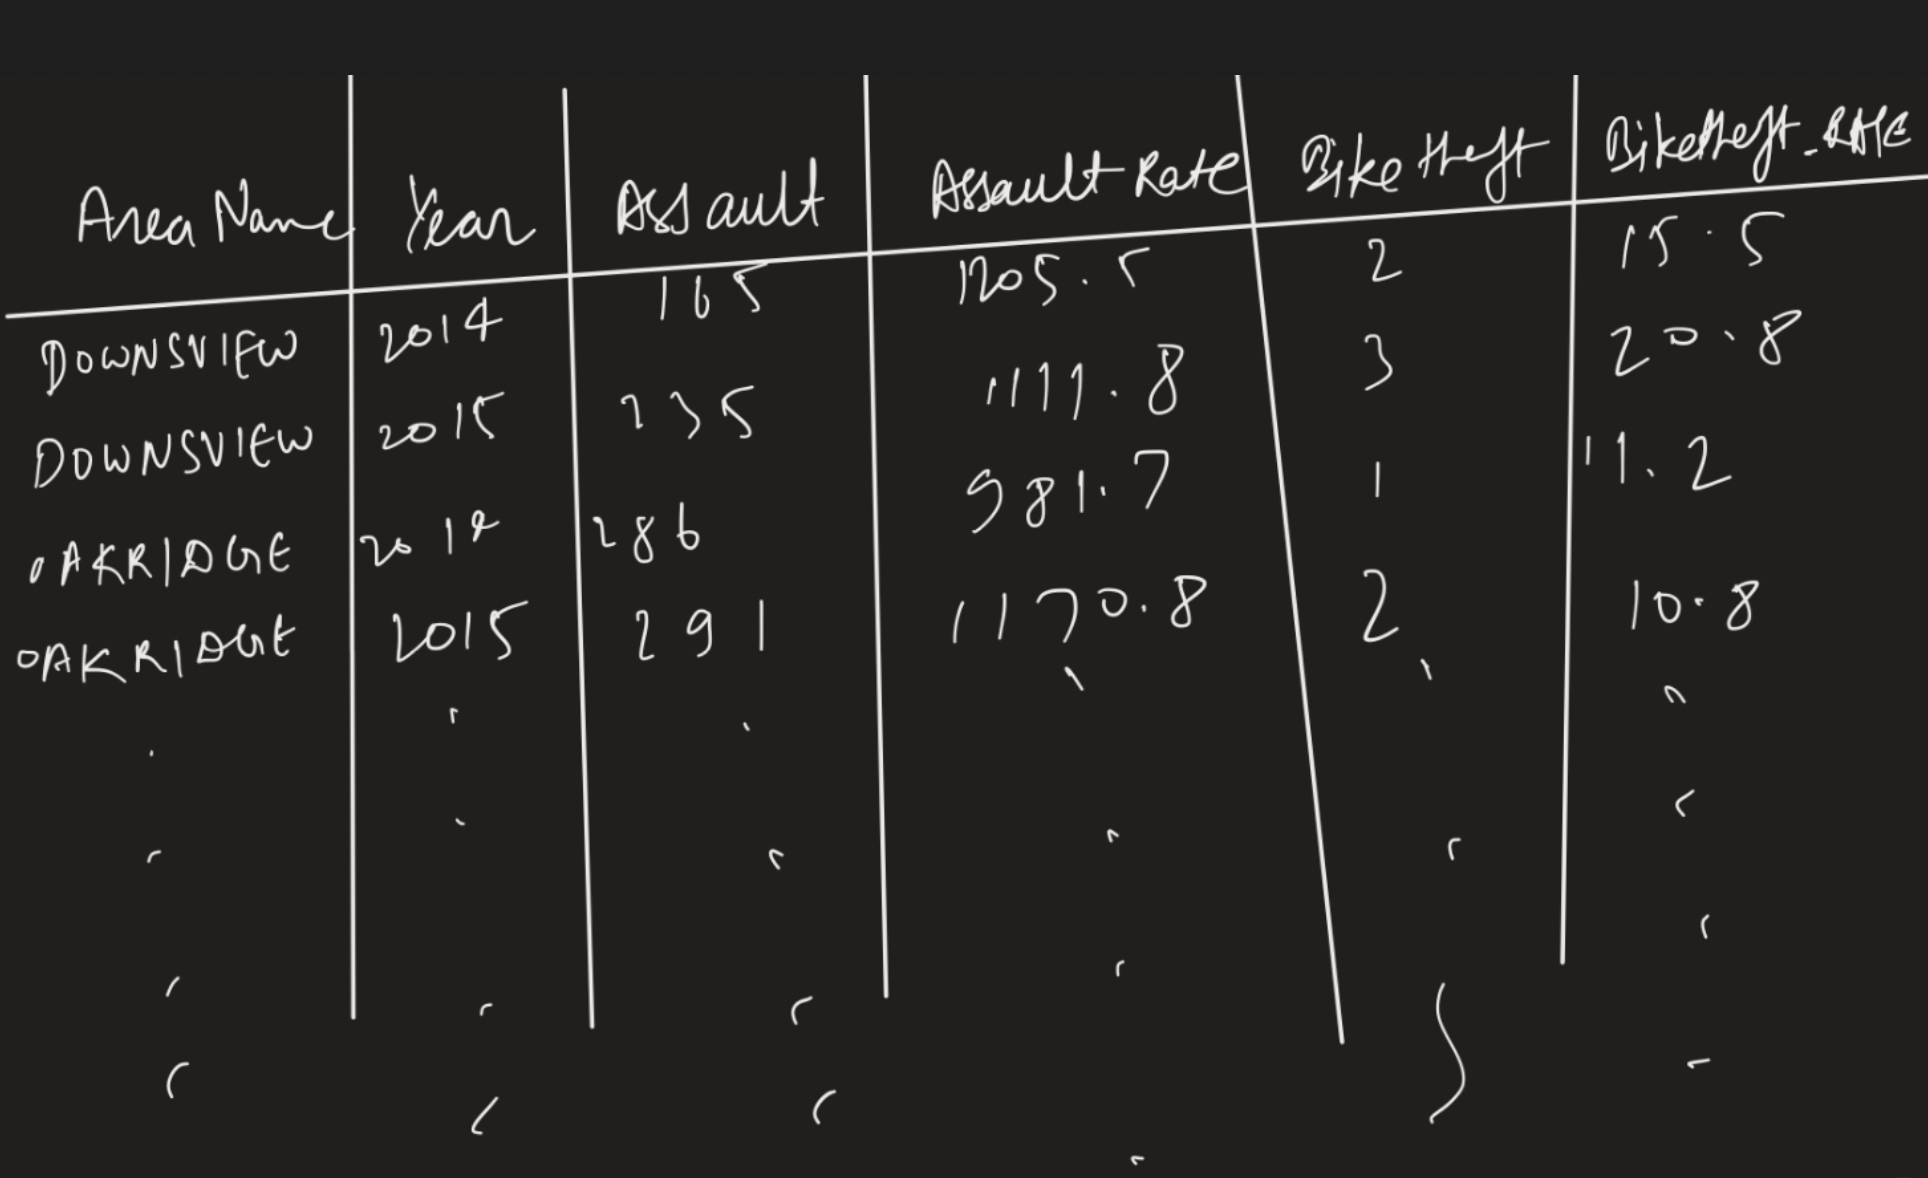 Area Name Year Assault Assault Rate Bike theft Biketheft_RATE
DOWNSVIEW 2014 165 1205.5 2 15.5
DOWNSVIEW 2015 235 1111.8 3 20.8
OAKRIDGE 2014 286 981.7 1 11.2
OAKRIDGE 2015 291 1170.8 2 10.8